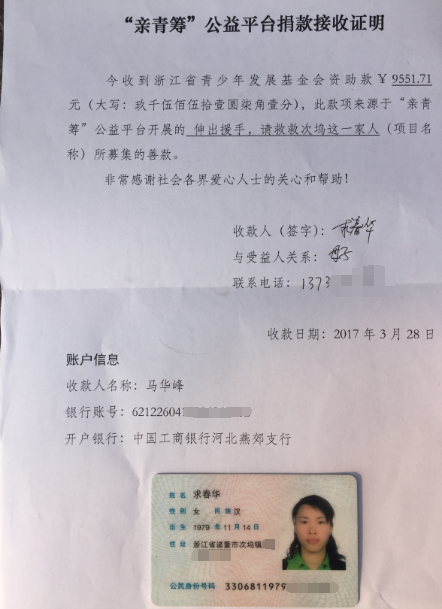 “亲青筹”公益平台捐款接收证明
今收到浙江省青少年发展基金会资助款￥9551.71
元（大写：玖千伍佰伍拾壹圆柒角壹分），此款项来源于“亲青
筹”公益平台开展的 伸出援手，请救救次坞这一家人（项目名
称）所募集的善款。
非常感谢社会各界爱心人士的关心和帮助！
收款人（签字）：求春华
与受益人关系：母子
联系电话：1373
收款日期：2017 年 3 月 28 日
账户信息
收款人名称：马华峰
银行账号：62122604
开户银行：中国工商银行河北燕郊支行
姓名 求春华
性别 女 民族 汉
出生 1979 年 11 月 14 日
住址 浙江省诸暨市次坞镇
公民身份号码 3306811979